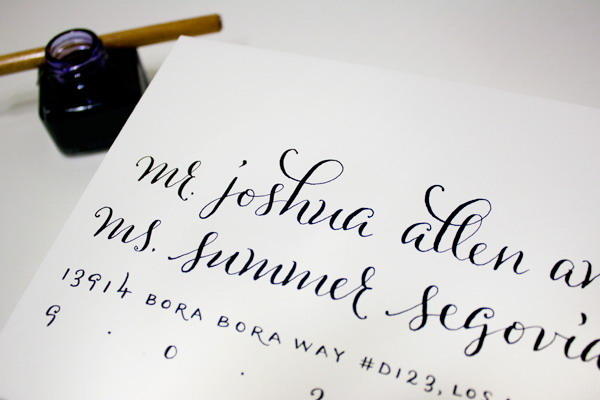 mr. joshua allen an
ms. summer segovia
13914 BORA BORA WAY #D123, LOS
9 . 0 . 2